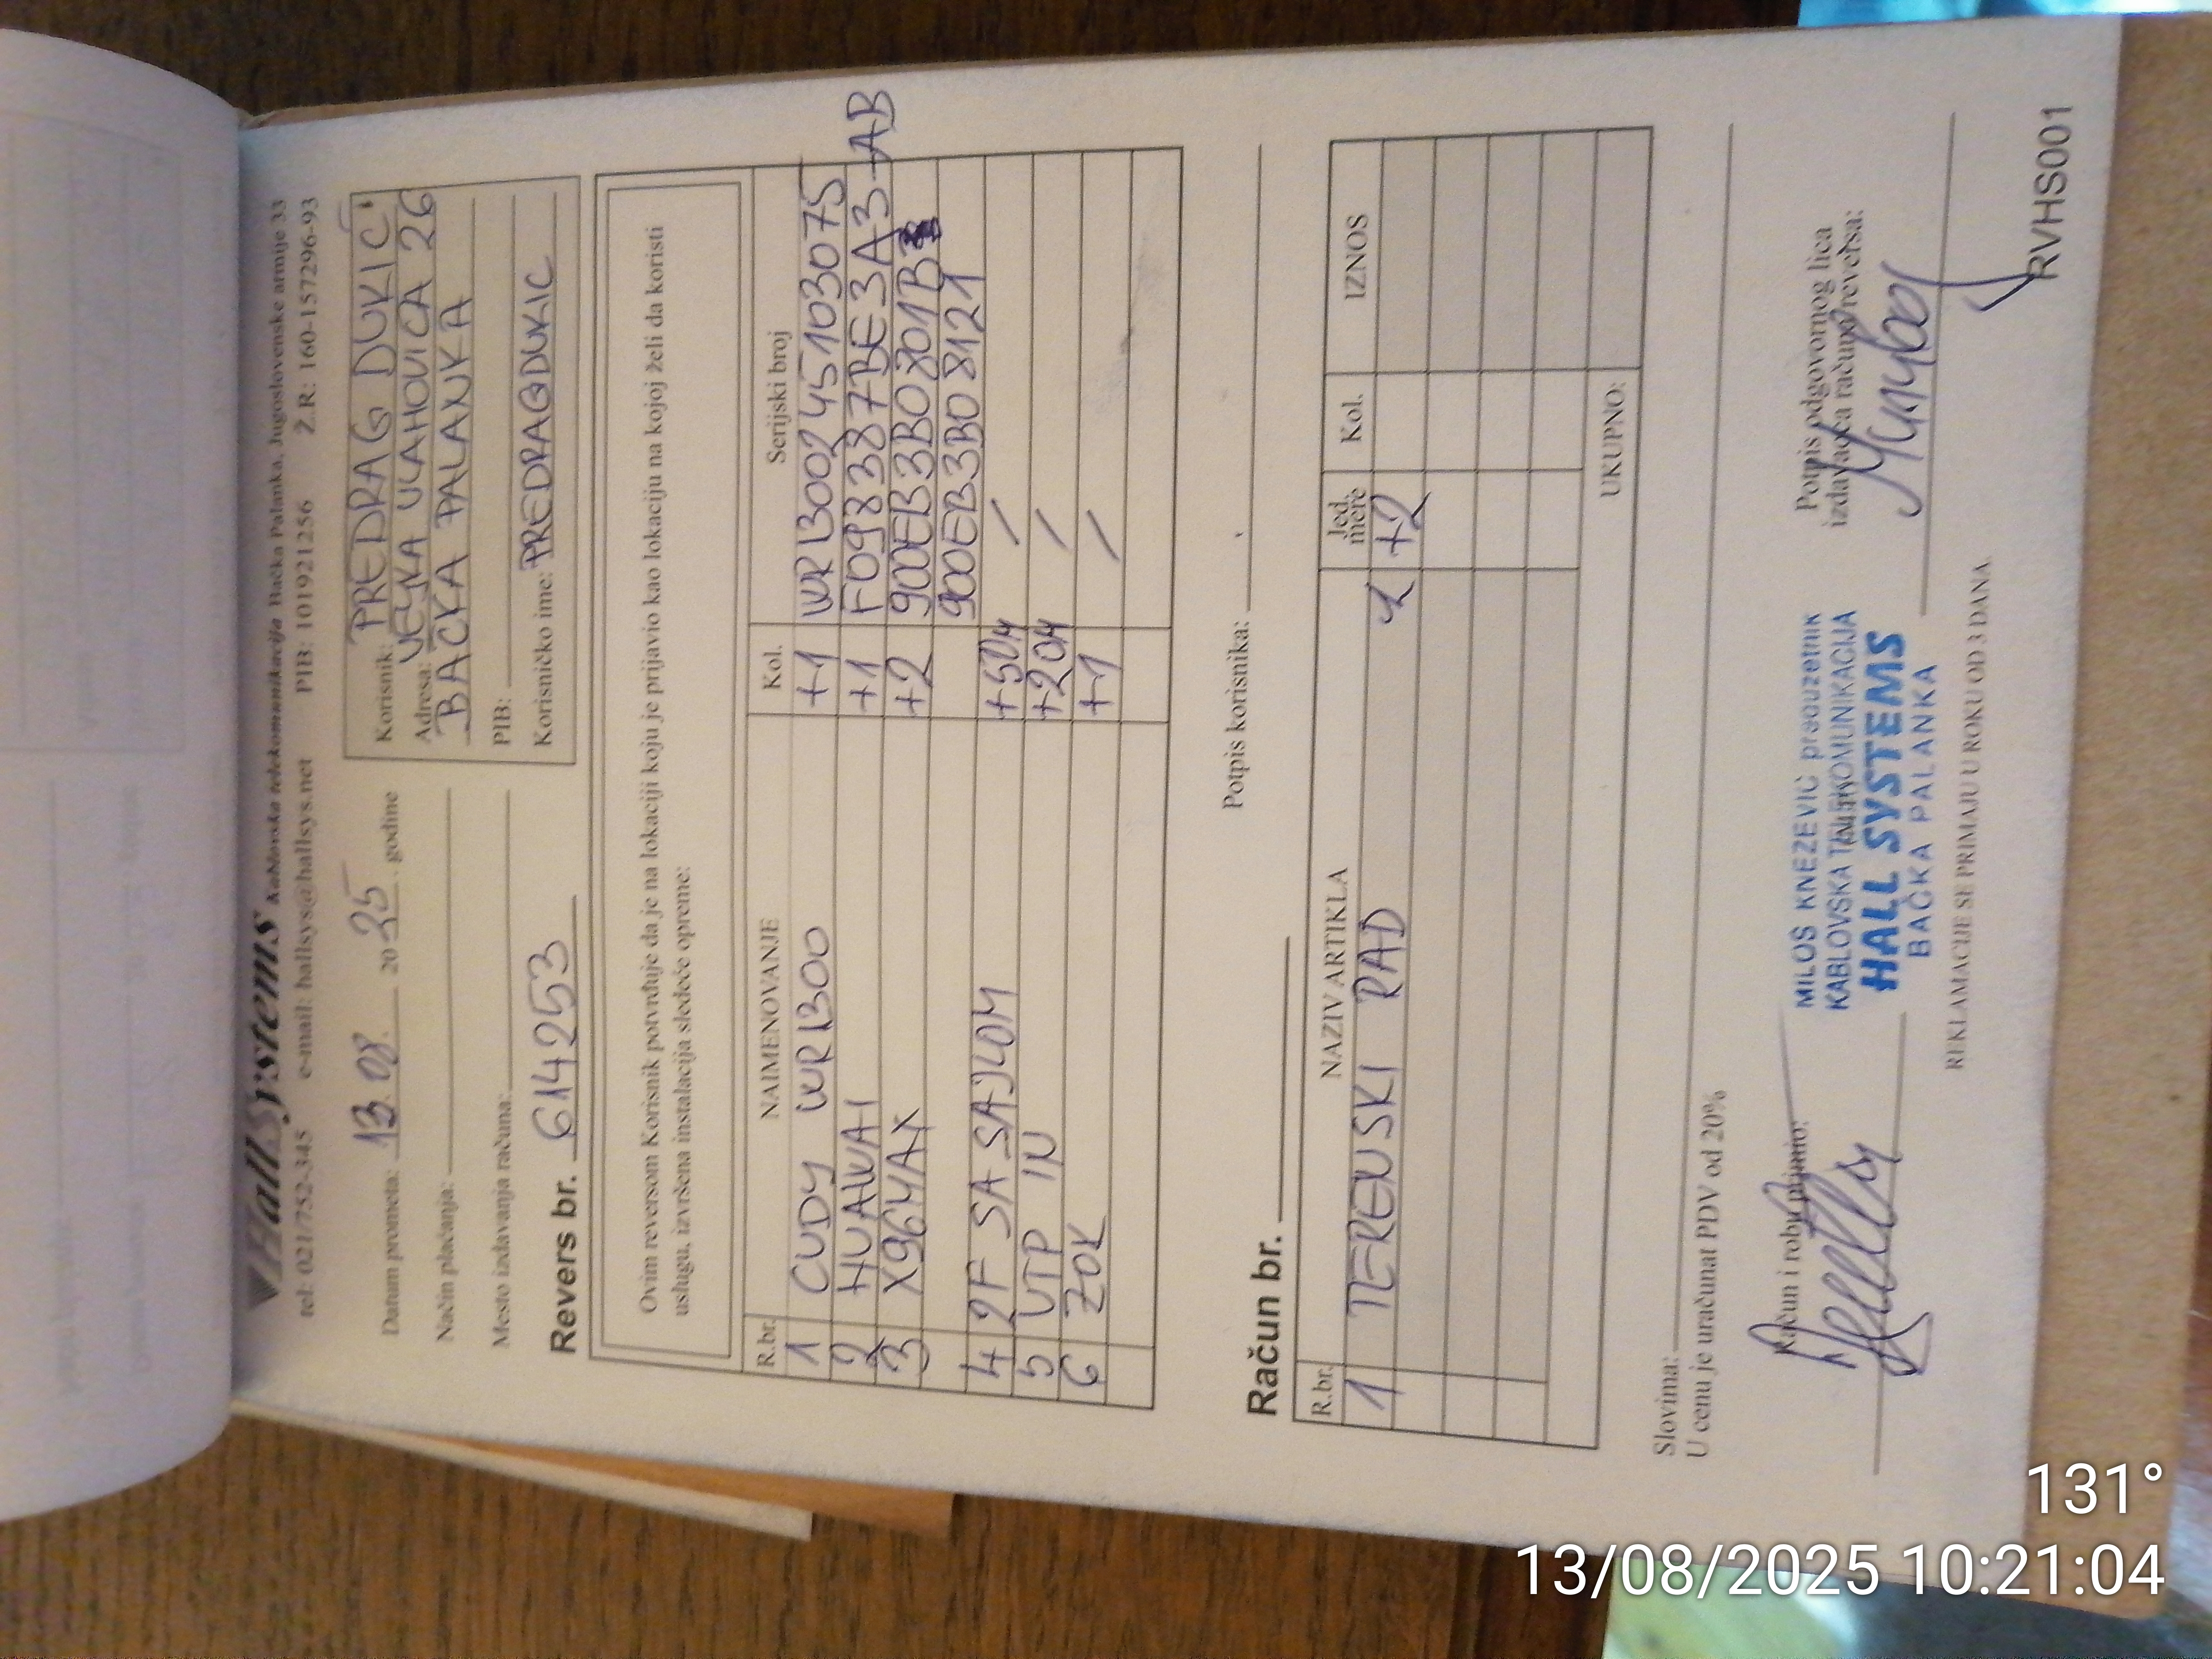 HallSystems Kablovska telekomunikacija Bačka Palanka, Jugoslovenske armije 33
tel: 021/752-345 e-mail: hallsys@hallsys.net PIB: 101921256 Ž.R: 160-157296-93
Datum prometa: 13.08. 2025. godine
Način plaćanja:
Mesto izdavanja računa:
Revers br. 614253
Korisnik: PREDRAG DUKIĆ
Adresa: VEJKA VLAHOVICA 26
BACKA PALANKA
PIB:
Korisničko ime: PREDRAGDUKIC
Ovim reversom Korisnik potvrđuje da je na lokaciji koju je prijavio kao lokaciju na kojoj želi da koristi
uslugu, izvršena instalacija sledeće opreme:
R.br. NAIMENOVANJE Kol. Serijski broj
1 CUDY WR1300 +1 WR13002451030075
2 HUAWAI +1 F09838B7BE3A3-AB
3 X96MAX +2 900EB3B0801B
900EB3B08121
4 2F SA SAJLOM +50M /
5 UTP IN +20M /
6 ZOK +1 /
Potpis korisnika:
Račun br.
R.br. NAZIV ARTIKLA Jed. mere Kol. IZNOS
1 TERENSKI RAD +2
UKUPNO:
Slovima:
U cenu je uračunat PDV od 20%
Račun i robu primio:
MILOŠ KNEŽEVIĆ preduzetnik
KABLOVSKA TELEKOMUNIKACIJA
HALL SYSTEMS
BAČKA PALANKA
Potpis odgovornog lica
izdavaoca računa/reversa:
REKLAMACIJE SE PRIMAJU U ROKU OD 3 DANA.
RVHS001
131°
13/08/2025 10:21:04